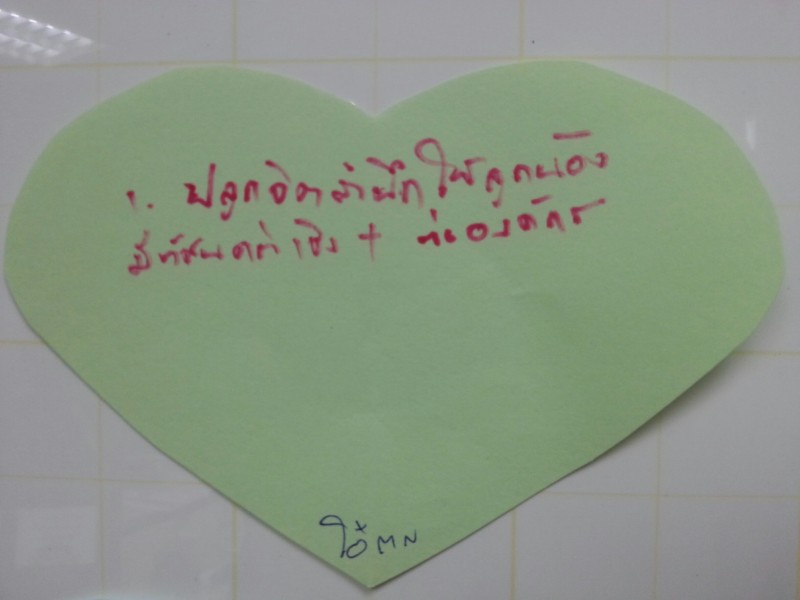 1. ปลูกจิตสำนึกให้ลูกน้อง
มีทัศนคติเชิง + ต่อองค์กร